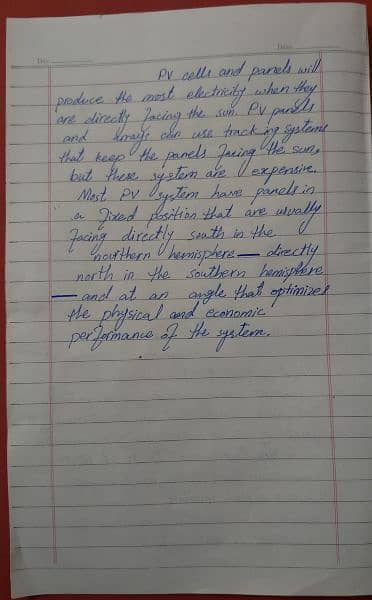 Date
Date
PV cells and panels will
produce the most electricity when they
are directly facing the sun. PV panels
and arrays can use tracking systems
that keep the panels facing the sun,
but these system are expensive.
Most PV system have panels in
a fixed position that are usually
facing directly south in the
nourthern hemisphere — directly
north in the southern hemisphere
— and at an angle that optimizes
the physical and economic
performance of the system.